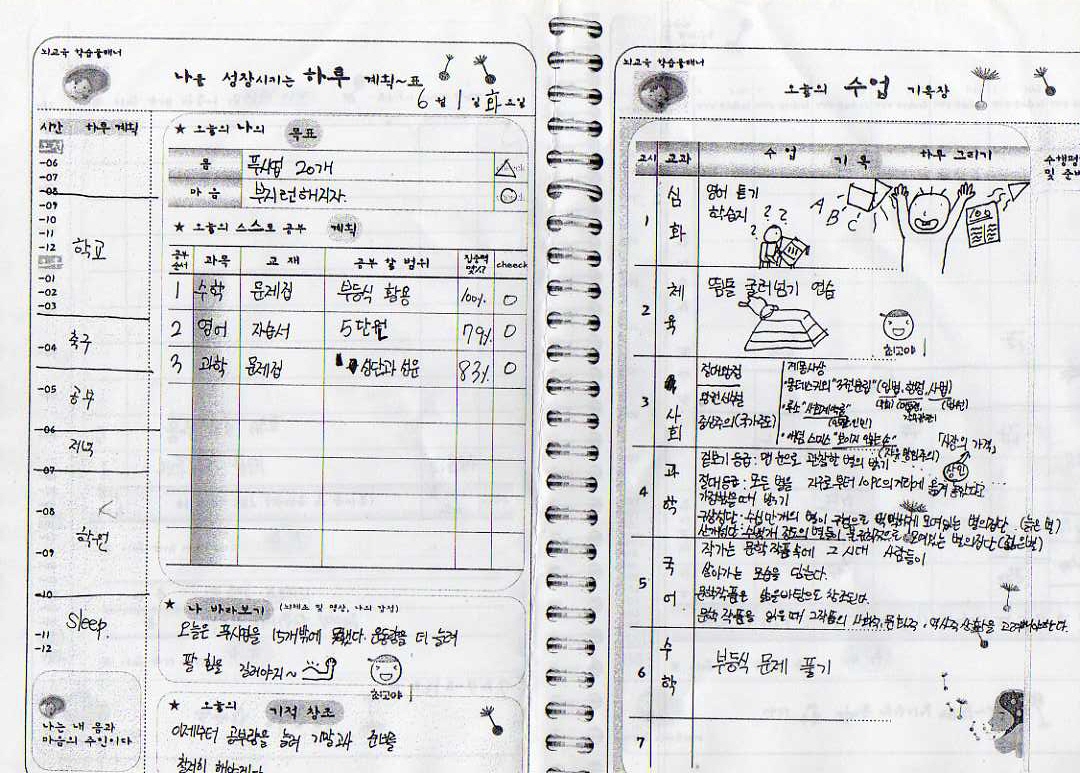 뇌교육 학습플래너
나를 성장시키는 하루 계획~표
6월 1일 화요일
시간 하루 계획
오전
-06
-07
-08
-09
-10
-11
-12
학교
-01
-02
-03
축구
-04
-05
공부
-06
저녁
-07
-08
학원
-09
-10
Sleep.
-11
-12
나는 내 몸과
마음의 주인이다
★ 오늘의 나의 목표
몸 푸샵 20개
마음 부지런해지자.
★ 오늘의 스스로 공부 계획
공부순서 과목 교재 공부 할 범위 집중력 몇%? cheeck
1 수학 문제집 부등식 활용 100% O
2 영어 자습서 5단원 79% O
3 과학 문제집 성단과 성운 83% O
★ 나 바라보기 (뇌체조 및 명상, 나의 감정)
오늘은 푸샵을 15개밖에 못했다. 운동량을 더 늘려
팔 힘을 길러야지~
최고야!
★ 오늘의 기적 창조
이제부터 공부량을 늘려 기말고사 준비를
철저히 해야겠다
뇌교육 학습플래너
오늘의 수업 기록장
교시 교과 수업 기록 하루 그리기
수행평
및 준비
1 심화 영어 듣기
학습지 ? ? ?
A B C
2 체육 뜀틀 굴러넘기 연습
최고야!
3 사회 절대왕정 계몽사상
·몽테스키외 "삼권분립" (입법, 행정, 사법)
왕권신수설
중상주의(국가주도) ·루소 "사회계약설"
·애덤 스미스 "보이지 않는 손" 「시장의 가격」
(자유방임주의)
4 과학 겉보기 등급: 맨 눈으로 관찰한 별의 밝기
절대등급: 모든 별을 지구로부터 10PC의 거리에 옮겨 놓았다고
가정했을 때 밝기
구상성단: 수만개의 별이 구형으로 빽빽하게 모여있는 별의집단 (늙은 별)
산개성단: 수백개 정도의 별들이 불규칙적으로 모여있는 별의집단 (젊은별)
5 국어 작가는 문학 작품속에 그 시대 사람들이
살아가는 모습을 담는다.
문학작품은 삶을 바탕으로 창조된다.
문학 작품을 읽을 때 그 작품의 사회적, 문화적, 역사적 상황을 고려해야한다.
6 수학 부등식 문제 풀기
7